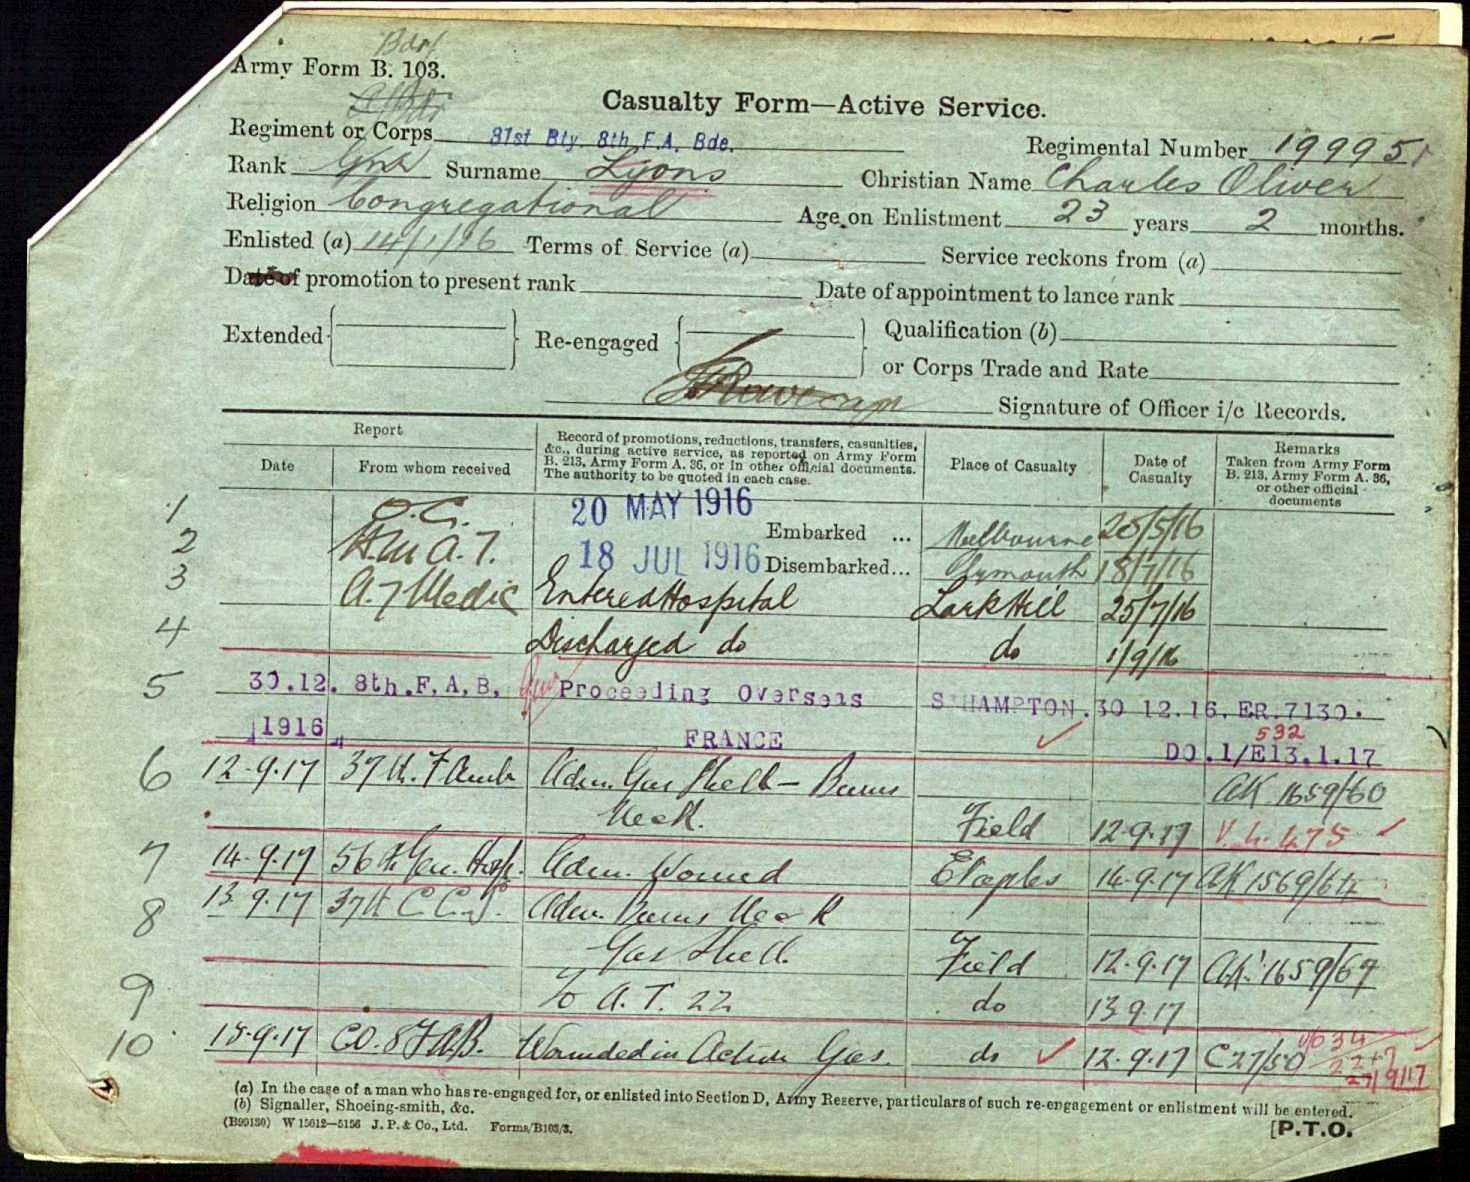 Bdr
Army Form B. 103.
Casualty Form—Active Service.
Regiment or Corps 31st Bty 8th F.A. Bde. Regimental Number 19995
Rank Gnr Surname Lyons Christian Name Charles Oliver
Religion Congregational Age on Enlistment 23 years 2 months.
Enlisted (a) 14/1/16 Terms of Service (a) Service reckons from (a)
Date of promotion to present rank Date of appointment to lance rank
Extended Re-engaged Qualification (b)
or Corps Trade and Rate
Signature of Officer i/c Records.
Report
Date From whom received Record of promotions, reductions, transfers, casualties, &c., during active service, as reported on Army Form B. 213, Army Form A. 36, or in other official documents. The authority to be quoted in each case. Place of Casualty Date of Casualty Remarks Taken from Army Form B. 213, Army Form A. 36, or other official documents
1 O.C. 20 MAY 1916 Embarked ... Melbourne 20/5/16
2 H.M.A.T. 18 JUL 1916 Disembarked... Plymouth 18/7/16
3 A.7 Medic Entered Hospital Lark Hill 25/7/16
4 Discharged do do 1/9/16
5 30.12. 8th.F.A.B. Proceeding Overseas S'HAMPTON. 30 12.16. ER.7130.
1916 FRANCE 532 DO.1/E13.1.17
6 12-9-17 37th F Amb Adm. Gas Shell - Burns AK 1659/60
Neck. Field 12-9-17 V.L. 475
7 14-9-17 56th Gen. Hosp. Adm. Wound Etaples 14-9-17 AK 1569/64
8 13-9-17 37th C C S. Adm. Burns Neck
Gas Shell. Field 12-9-17 AK 1659/67
9 To A.T. 22 do 13 9.17
10 15-9-17 CO. 8 FAB. Wounded in Action Gas. do 12-9-17 C27/50 634
27/9/17
(a) In the case of a man who has re-engaged for, or enlisted into Section D, Army Reserve, particulars of such re-engagement or enlistment will be entered.
(b) Signaller, Shoeing-smith, &c.
(B99130) W 15612—5156 J. P. & Co., Ltd. Forms/B103/3. [P.T.O.